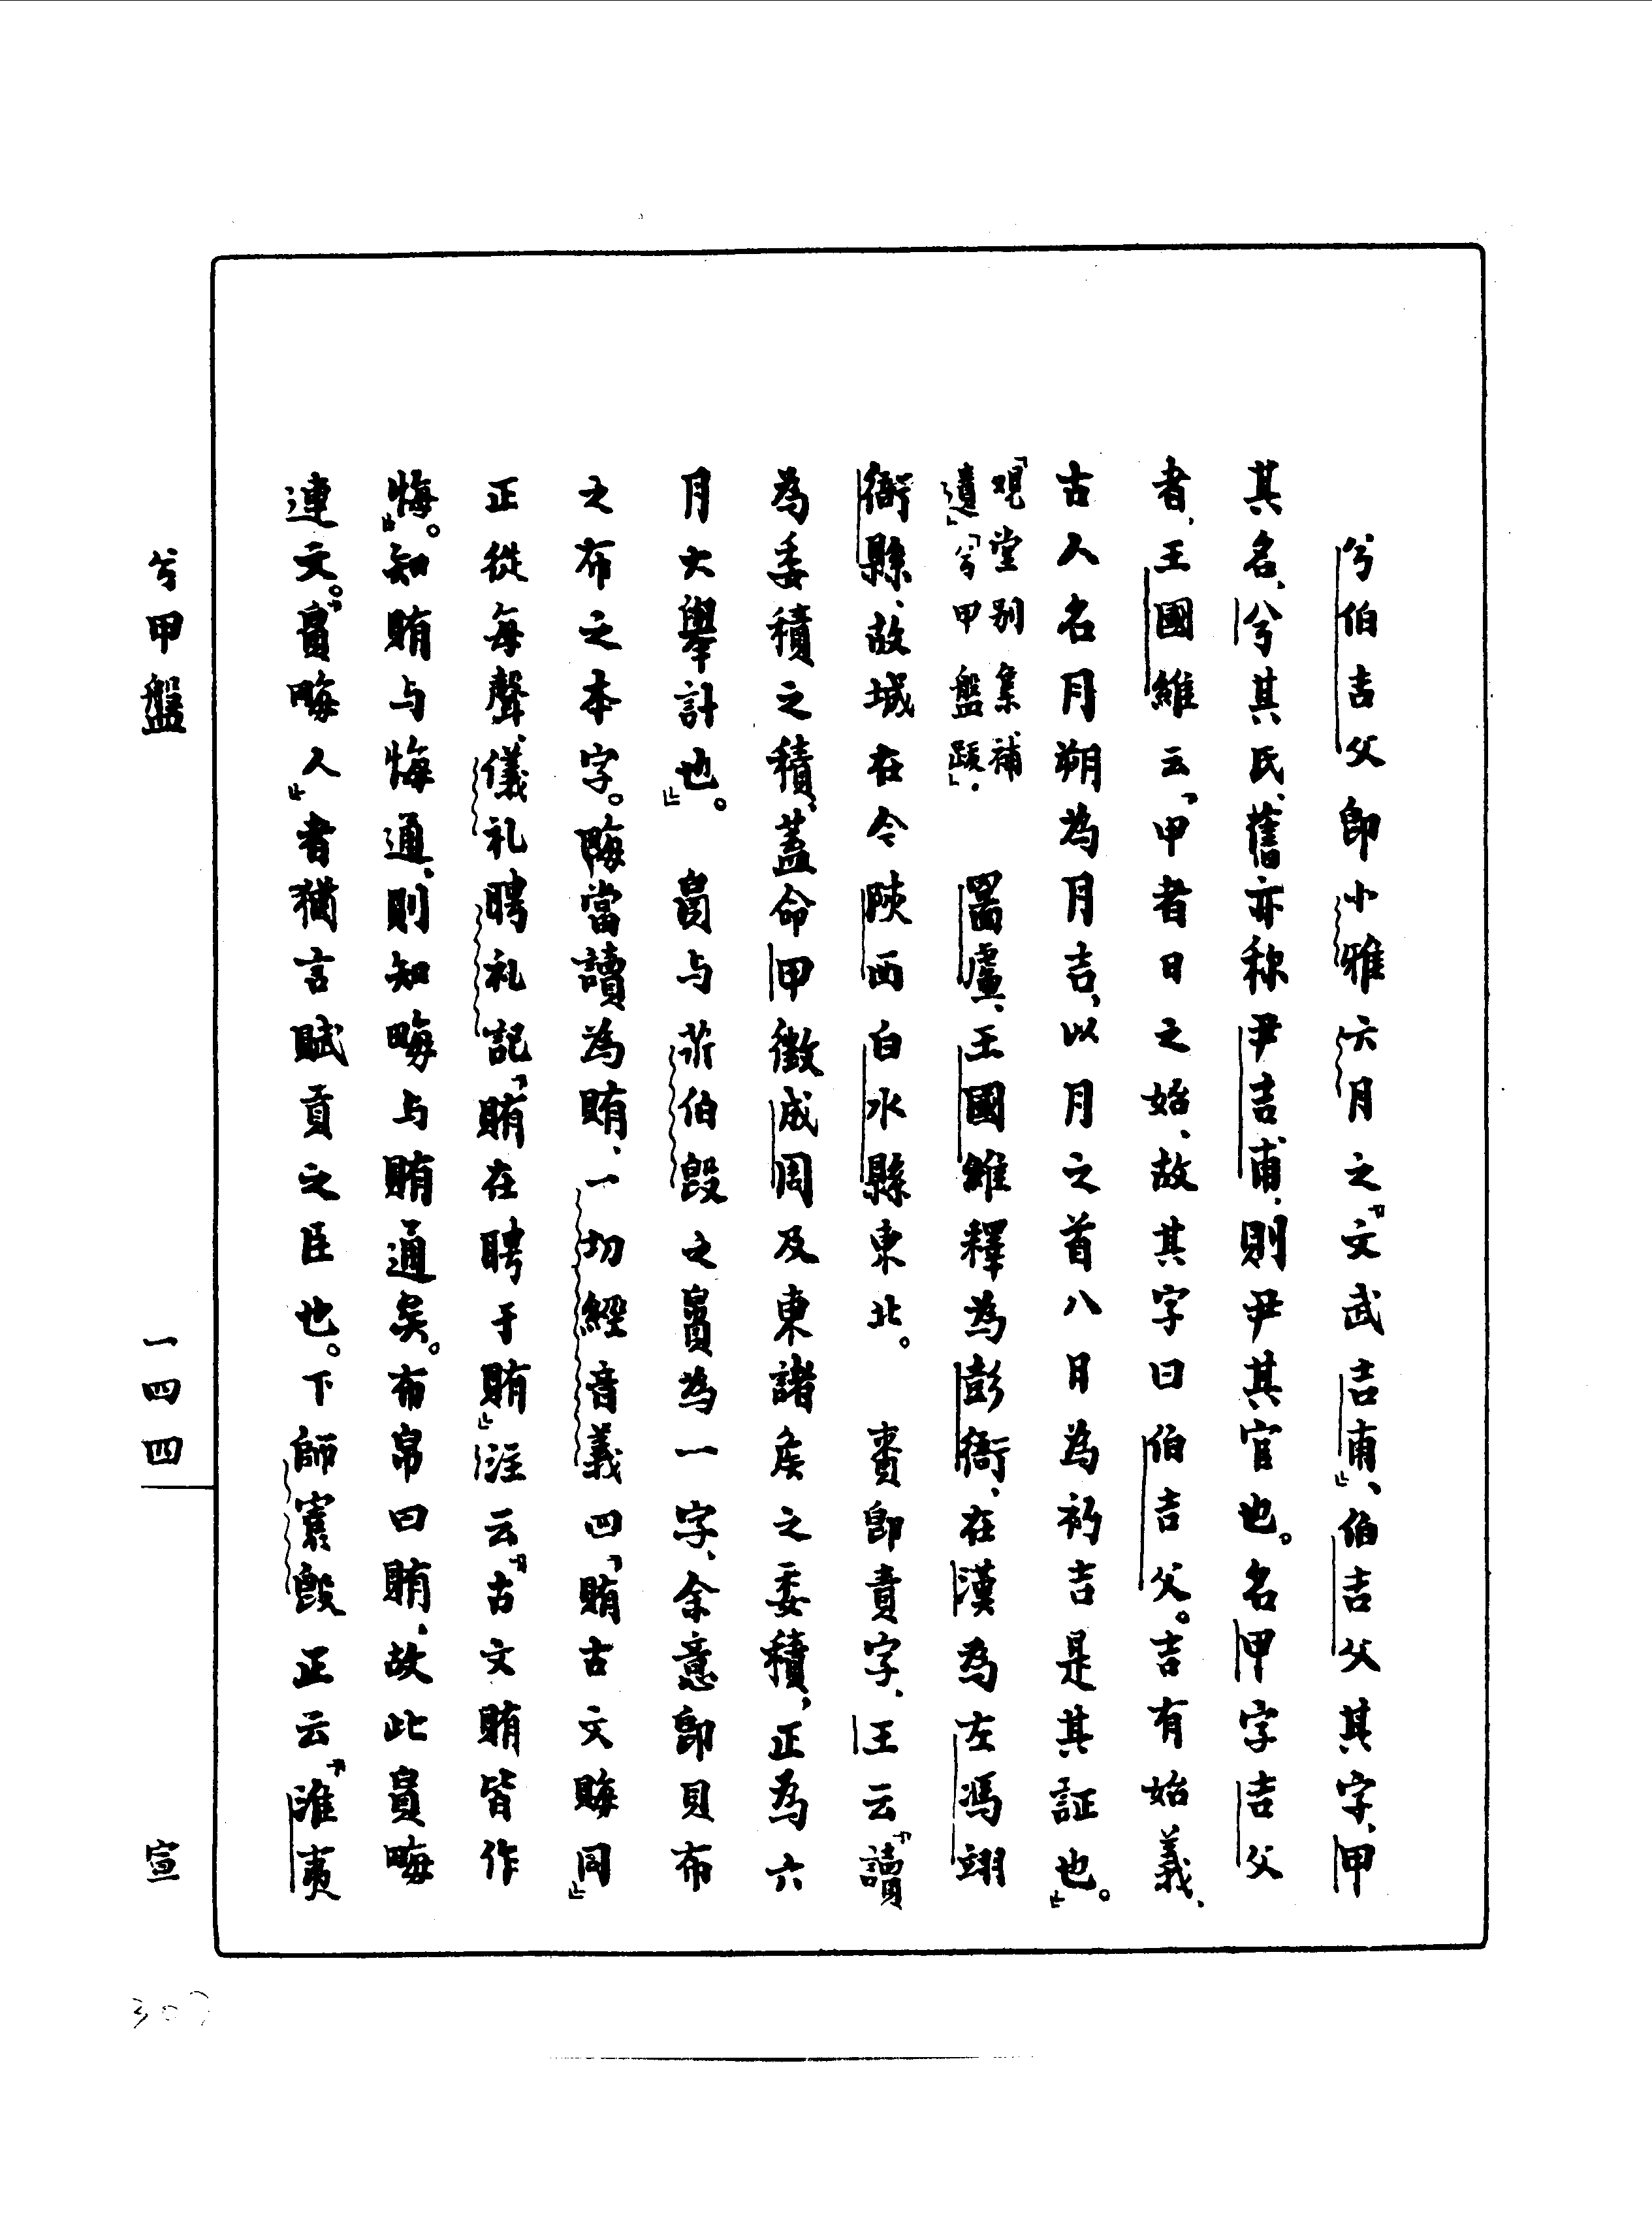 兮伯吉父即小雅六月之「文武吉甫」、伯吉父其字、甲
其名、兮其氏、舊亦称尹吉甫、則尹其官也。名甲字吉父
者、王國維云「甲者日之始、故其字曰伯吉父。吉有始義、
古人名月朔為月吉、以月之首八月為初吉是其証也」。
「觀堂別集補
遺」「兮甲盤跋」. 䚄䖒、王國維釋為彭衙、在漢為左馮翊
衙縣、故城在今陝西白水縣東北。 𧵩即責字、王云「讀
為委積之積、蓋命甲徵成周及東諸矦之委積、正為六
月大舉計也」。 𢃇与䣄伯𣪘之𧷽為一字、余意即貝布
之布之本字。晦當讀為賄、一切經音義四「賄古文䀲同」
正從每聲、儀礼聘礼記「賄在聘于賄」注云「古文賄皆作
悔」。知賄与悔通、則知晦与賄通矣。布帛曰賄、故此𧷽晦
連文。「𧷽晦人」者猶言賦貢之臣也。下師㝨𣪘正云「淮夷
兮甲盤
一四四
宣
307